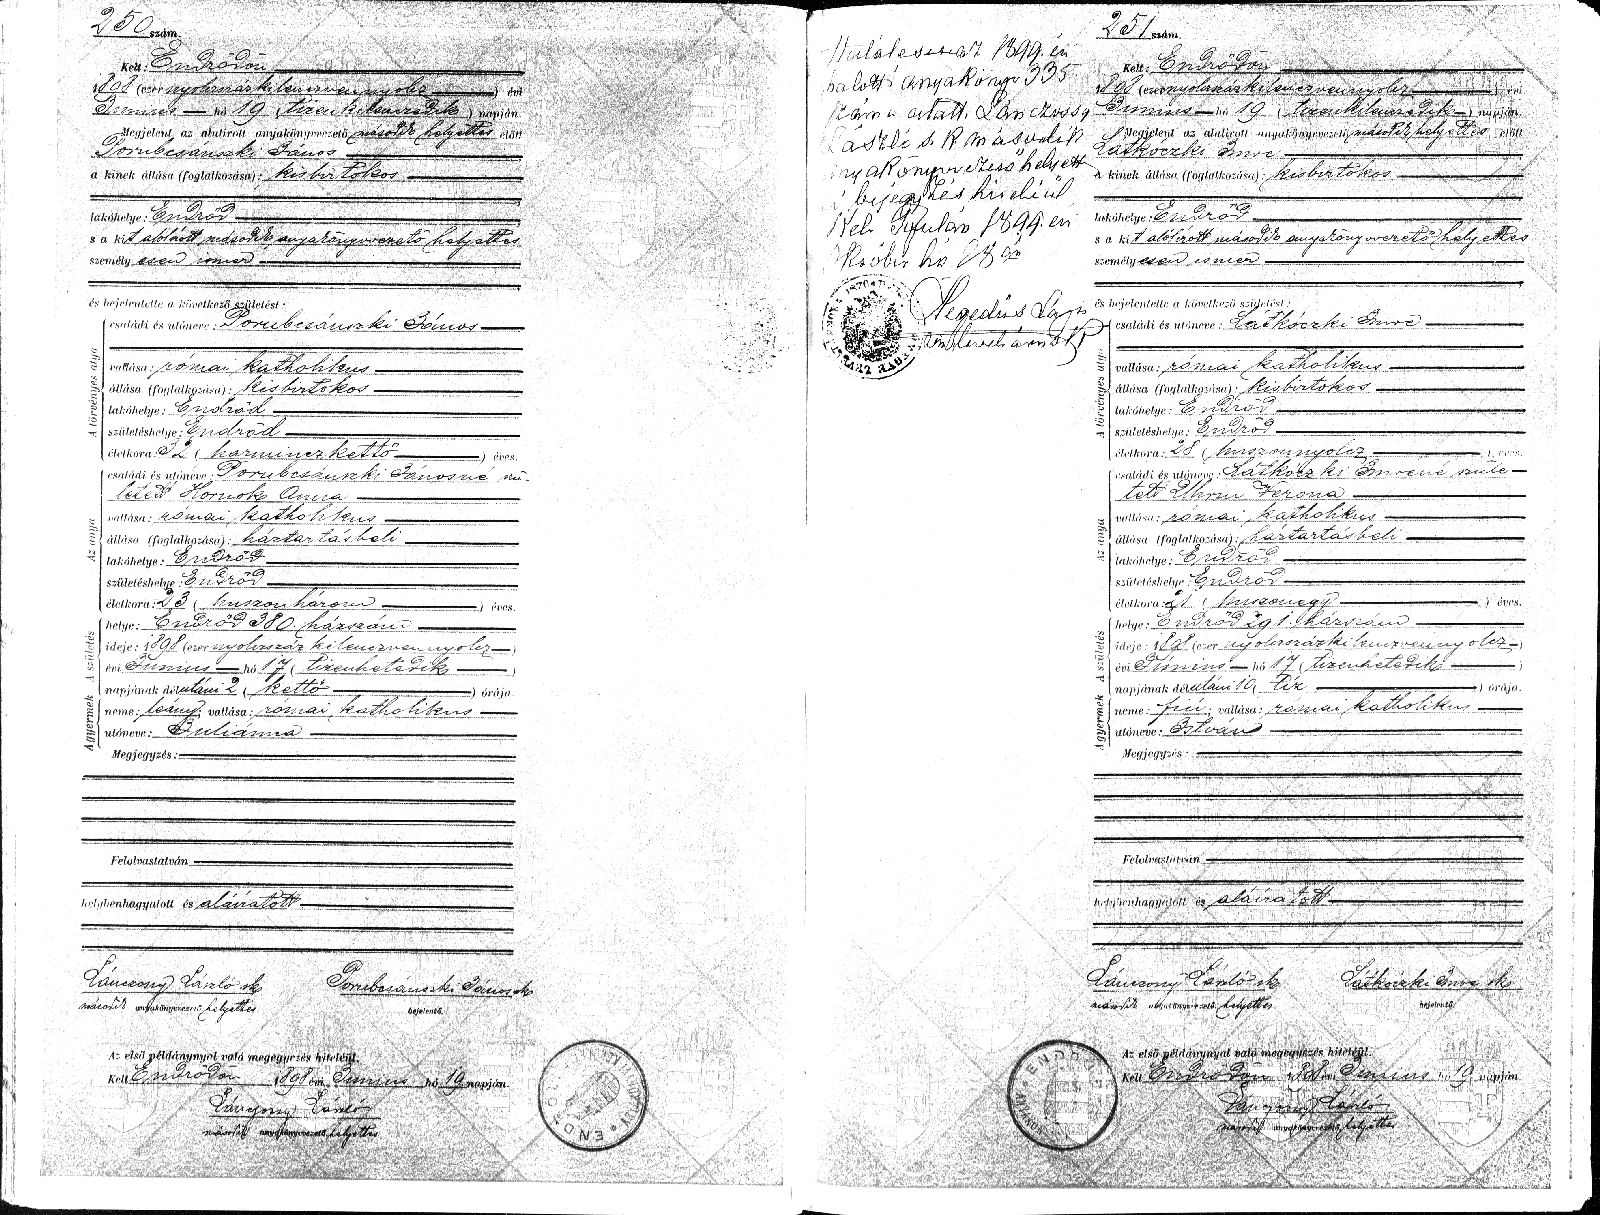 250 szám.
Kelt: Endrődön
1898 (ezernyolczszázkilenczvennyolcz) évi
Junius hó 19 (tizenkilenczedik) napján.
Megjelent az alulirott anyakönyvvezető második helyettes előtt
Porubcsánszki János
a kinek állása (foglalkozása): kisbirtokos
lakóhelye: Endrőd
s a kit alólirott második anyakönyvvezető helyettes
személyesen ismer
és bejelentette a következő születést:
A törvényes atya
családi és utóneve: Porubcsánszki János
vallása: római katholikus
állása (foglalkozása): kisbirtokos
lakóhelye: Endrőd
születéshelye: Endrőd
életkora: 32 (harminczkettő) éves.
Az anya
családi és utóneve: Porubcsánszki Jánosné szü-
letett Hornok Anna
vallása: római katholikus
állása (foglalkozása): háztartásbeli
lakóhelye: Endrőd
születéshelye: Endrőd
életkora: 23 (huszonhárom) éves.
A születés
helye: Endrőd 380. házszám
ideje: 1898 (ezernyolczszázkilenczvennyolcz)
évi Junius hó 17 (tizenhetedik)
napjának délutáni 2 (kettő) órája.
A gyermek
neme: leány; vallása: római katholikus
utóneve: Juliánna
Megjegyzés:
Felolvastatván
helybenhagyatott és aláiratott
Lánczony László sk Porubcsánszki János sk
második anyakönyvvezető helyettes bejelentő.
Az első példánynyal való megegyezés hiteléül.
Kelt Endrődön 1898 évi Junius hó 19 napján.
Lánczony László
második anyakönyvvezető helyettes
Halálesetet 1899. évi
halotti anyakönyv 335
szám alatt. Lánczossy
László s. k. második
anyakönyvvezető helyett
bejegyzés hiteléül
Kelt Gyulán 1899. évi
Október hó 13 án
Hegedüs
251 szám.
Kelt: Endrődön
1898 (ezernyolczszázkilenczvennyolcz) évi
Junius hó 19 (tizenkilenczedik) napján.
Megjelent az alulirott anyakönyvvezető második helyettes előtt
Látkóczki Imre
a kinek állása (foglalkozása): kisbirtokos
lakóhelye: Endrőd
s a kit alólirott második anyakönyvvezető helyettes
személyesen ismer
és bejelentette a következő születést:
A törvényes atya
családi és utóneve: Látkóczki Imre
vallása: római katholikus
állása (foglalkozása): kisbirtokos
lakóhelye: Endrőd
születéshelye: Endrőd
életkora: 28 (huszonnyolcz) éves.
Az anya
családi és utóneve: Látkóczki Imréné szüle-
tett Uhrin Verona
vallása: római katholikus
állása (foglalkozása): háztartásbeli
lakóhelye: Endrőd
születéshelye: Endrőd
életkora: 21 (huszonegy) éves.
A születés
helye: Endrőd 291. házszám
ideje: 1898 (ezernyolczszázkilenczvennyolcz)
évi Junius hó 17 (tizenhetedik)
napjának délutáni 10 (tíz) órája.
A gyermek
neme: fiú; vallása: római katholikus
utóneve: István
Megjegyzés:
Felolvastatván
helybenhagyatott és aláiratott
Lánczony László sk Látkóczki Imre sk
második anyakönyvvezető helyettes bejelentő.
Az első példánynyal való megegyezés hiteléül.
Kelt Endrődön 1898 évi Junius hó 19 napján.
Lánczony László
második anyakönyvvezető helyettes